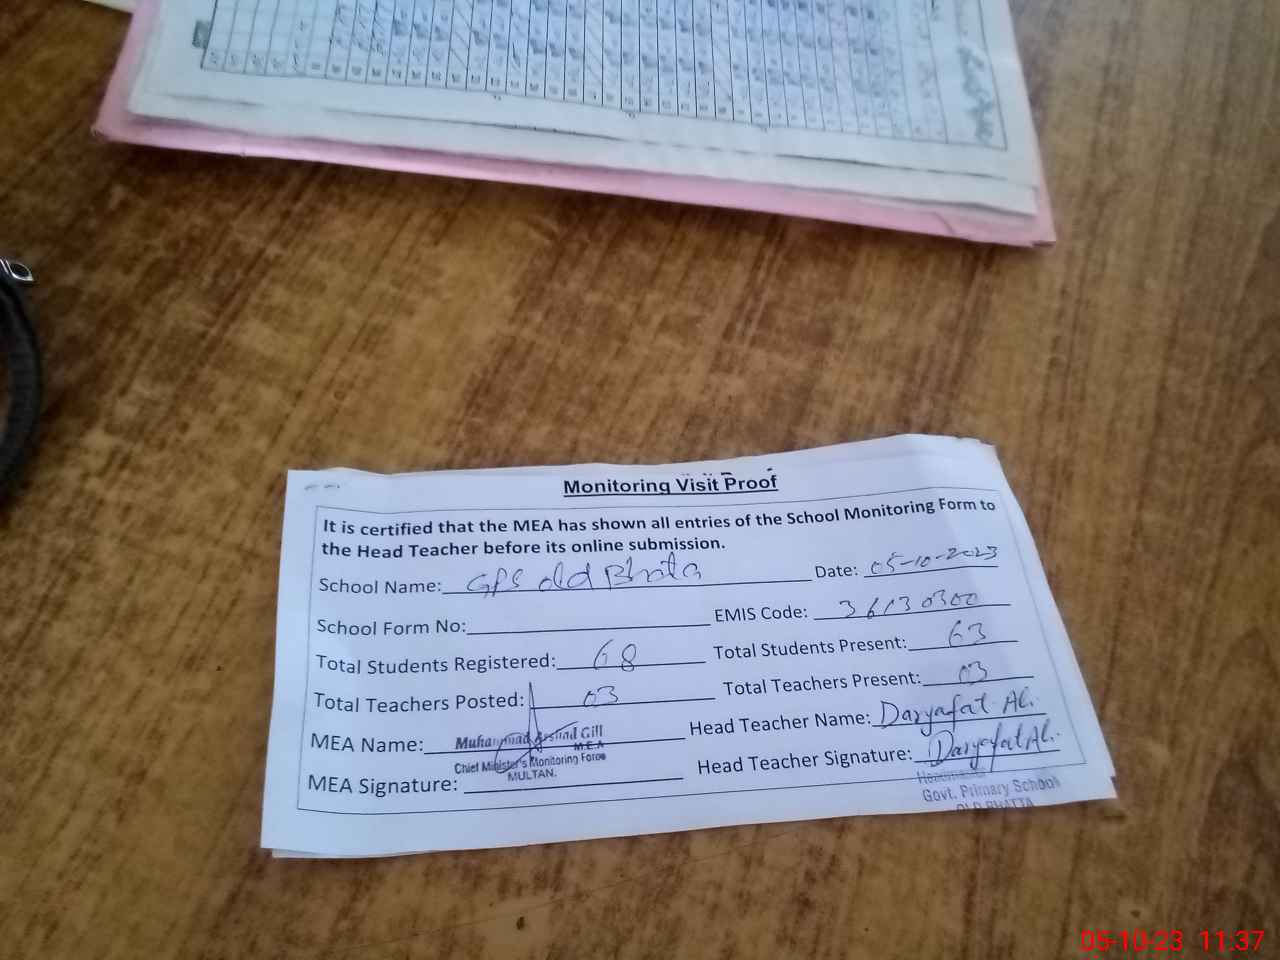 Monitoring Visit Proof
It is certified that the MEA has shown all entries of the School Monitoring Form to
the Head Teacher before its online submission.
School Name: GPS old Bhata Date: 05-10-2023
School Form No: EMIS Code: 36130300
Total Students Registered: 68 Total Students Present: 63
Total Teachers Posted: 03 Total Teachers Present: 03
MEA Name: Muhammad Arshad Gill Head Teacher Name: Daryafat Al.
M.E.A
Chief Minister's Monitoring Force
MULTAN.
MEA Signature: Head Teacher Signature: Daryafat Al.
Headmaster
Govt. Primary School
OLD BHATTA
05-10-23 11:37